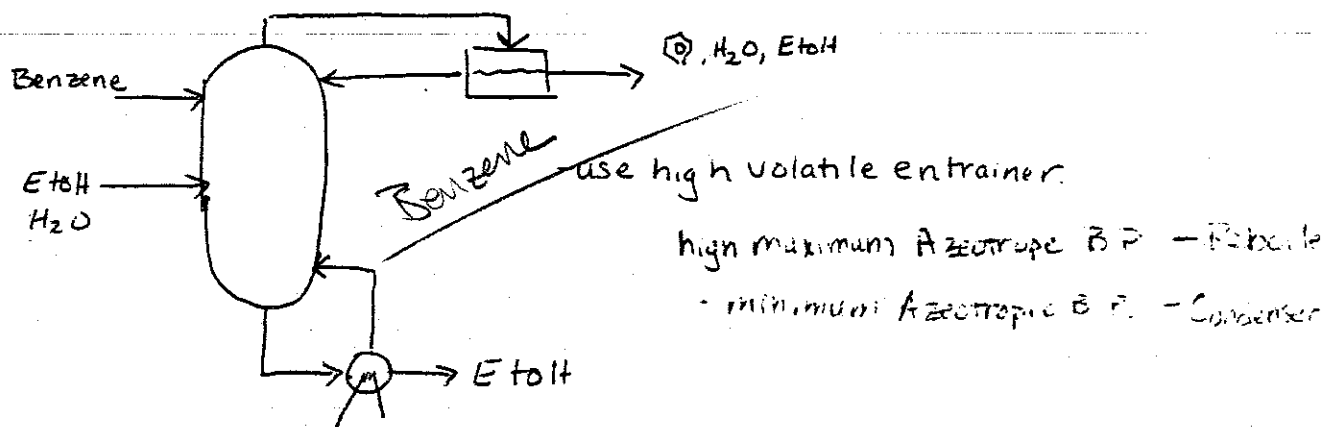 Benzene
EtoH
H₂O
, H₂O, EtoH
Benzene
use high volatile entrainer.
high maximum Azeotrope B P. -
- minimum Azeotropic B P. - Condenser
EtoH